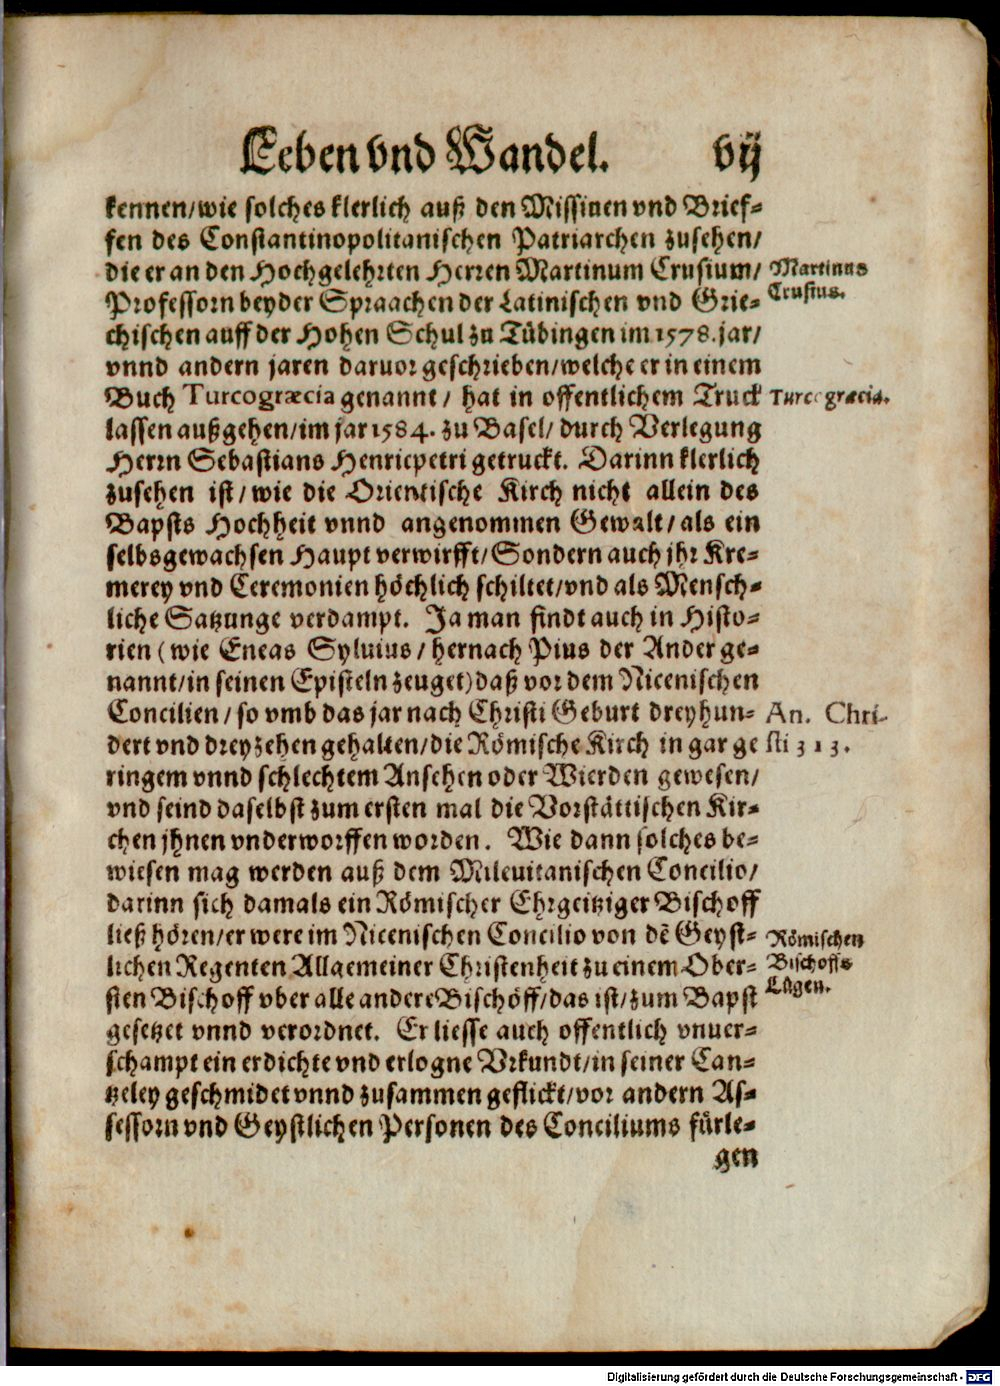 Leben vnd Wandel. vij
kennen/wie solches klerlich auß den Missiuen vnd Brief-
fen des Constantinopolitanischen Patriarchen zusehen/
die er an den Hochgelehrten Herren Martinum Crusium/
Martinus
Professorn beyder Spraachen der Latinischen vnd Grie-
Crusius.
chischen auff der Hohen Schul zu Tübingen im 1578. jar/
vnnd andern jaren daruor geschrieben/welche er in einem
Buch Turcogræcia genannt/ hat in offentlichem Truck
Turcogræcia.
lassen außgehen/im jar 1584. zu Basel/ durch Verlegung
Herrn Sebastians Henricpetri getruckt. Darinn klerlich
zusehen ist/ wie die Orientische Kirch nicht allein des
Bapsts Hochheit vnnd angenommen Gewalt/ als ein
selbsgewachsen Haupt verwirfft/ Sondern auch jhr Kre-
merey vnd Ceremonien höchlich schiltet/vnd als Mensch-
liche Satzunge verdampt. Ja man findt auch in Histo-
rien (wie Eneas Syluius/ hernach Pius der Ander ge-
nannt/in seinen Episteln zeuget) daß vor dem Nicenischen
Concilien/ so vmb das jar nach Christi Geburt dreyhun-
An. Chri-
dert vnd dreyzehen gehalten/die Römische Kirch in gar ge
sti 313.
ringem vnnd schlechtem Ansehen oder Wierden gewesen/
vnd seind daselbst zum ersten mal die Vorstättischen Kir-
chen jhnen vnderworffen worden. Wie dann solches be-
wiesen mag werden auß dem Mileuitanischen Concilio/
darinn sich damals ein Römischer Ehrgeitziger Bischoff
ließ hören/er were im Nicenischen Concilio von dē Geyst-
Römischen
lichen Regenten Allgemeiner Christenheit zu einem Ober-
Bischoffs
sten Bischoff vber alle andere Bischöff/das ist/zum Bapst
Lügen.
gesetzet vnnd verordnet. Er liesse auch offentlich vnuer-
schampt ein erdichte vnd erlogne Vrkundt/in seiner Can-
tzeley geschmidet vnnd zusammen geflickt/vor andern As-
sessorn vnd Geystlichen Personen des Conciliums fürle-
gen
Digitalisierung gefördert durch die Deutsche Forschungsgemeinschaft - DFG